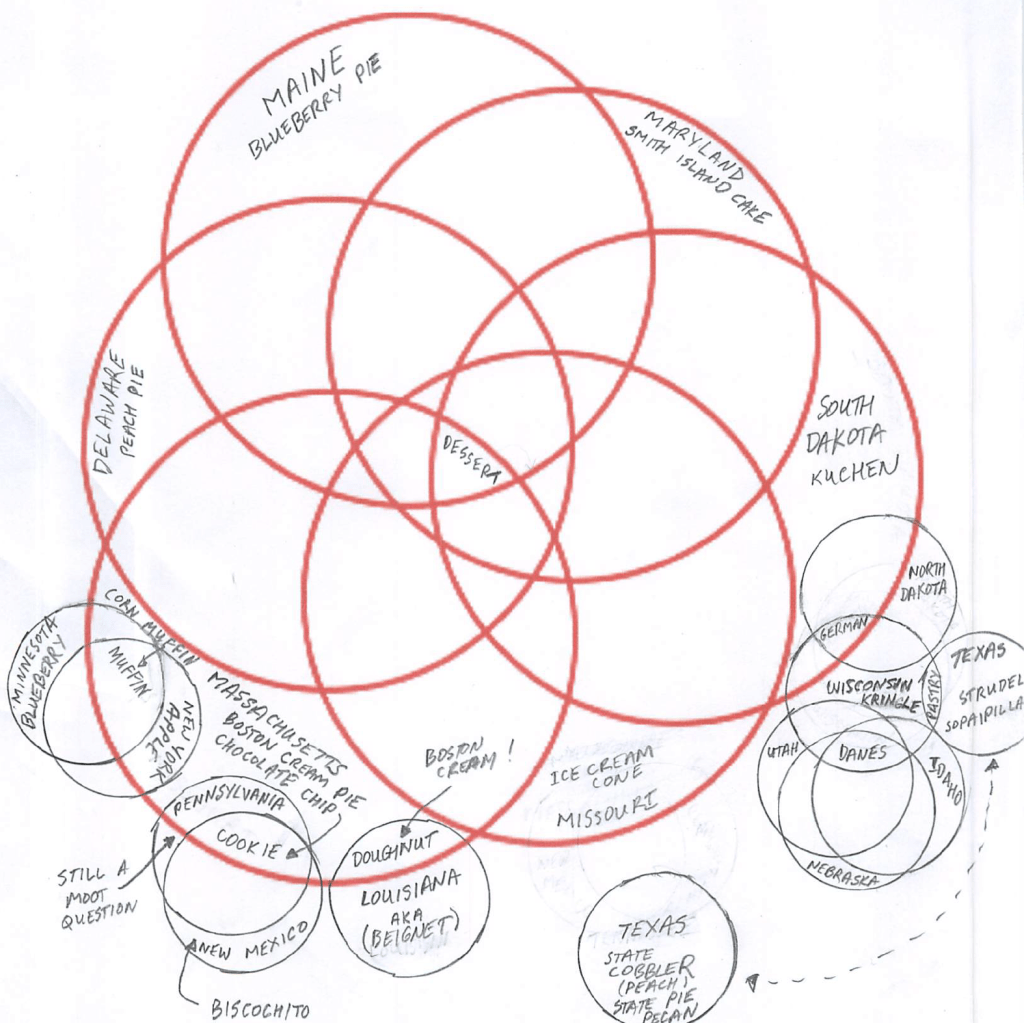 MAINE
BLUEBERRY PIE
MARYLAND
SMITH ISLAND CAKE
DELAWARE
PEACH PIE
DESSERT
SOUTH
DAKOTA
KUCHEN
NORTH
DAKOTA
GERMAN
WISCONSIN
KRINGLE
PASTRY
TEXAS
STRUDEL
SOPAIPILLA
UTAH
DANES
IDAHO
NEBRASKA
CORN MUFFIN
MINNESOTA
BLUEBERRY
MUFFIN
NEW YORK
APPLE
MASSACHUSETTS
BOSTON CREAM PIE
CHOCOLATE CHIP
BOSTON
CREAM!
ICE CREAM
CONE
MISSOURI
PENNSYLVANIA
COOKIE
STILL A
MOOT
QUESTION
NEW MEXICO
BISCOCHITO
DOUGHNUT
LOUISIANA
AKA
(BEIGNET)
TEXAS
STATE
COBBLER
(PEACH)
STATE PIE
PECAN